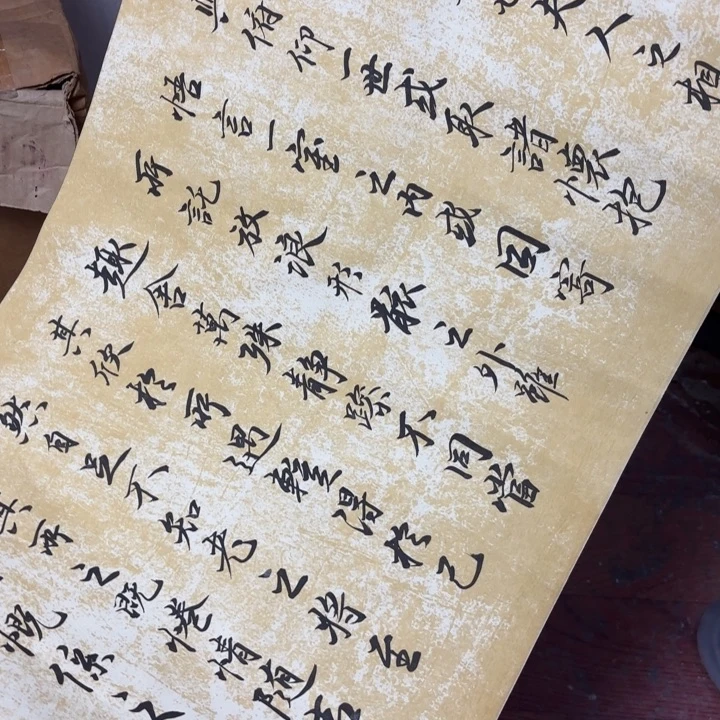 夫人之相
與俯仰一世或取諸懷抱
悟言一室之内或因寄
所託放浪形骸之外雖
趣舍萬殊静躁不同當
其欣於所遇蹔得於己
然自足不知老之將至
其所之既惓情随
慨係之